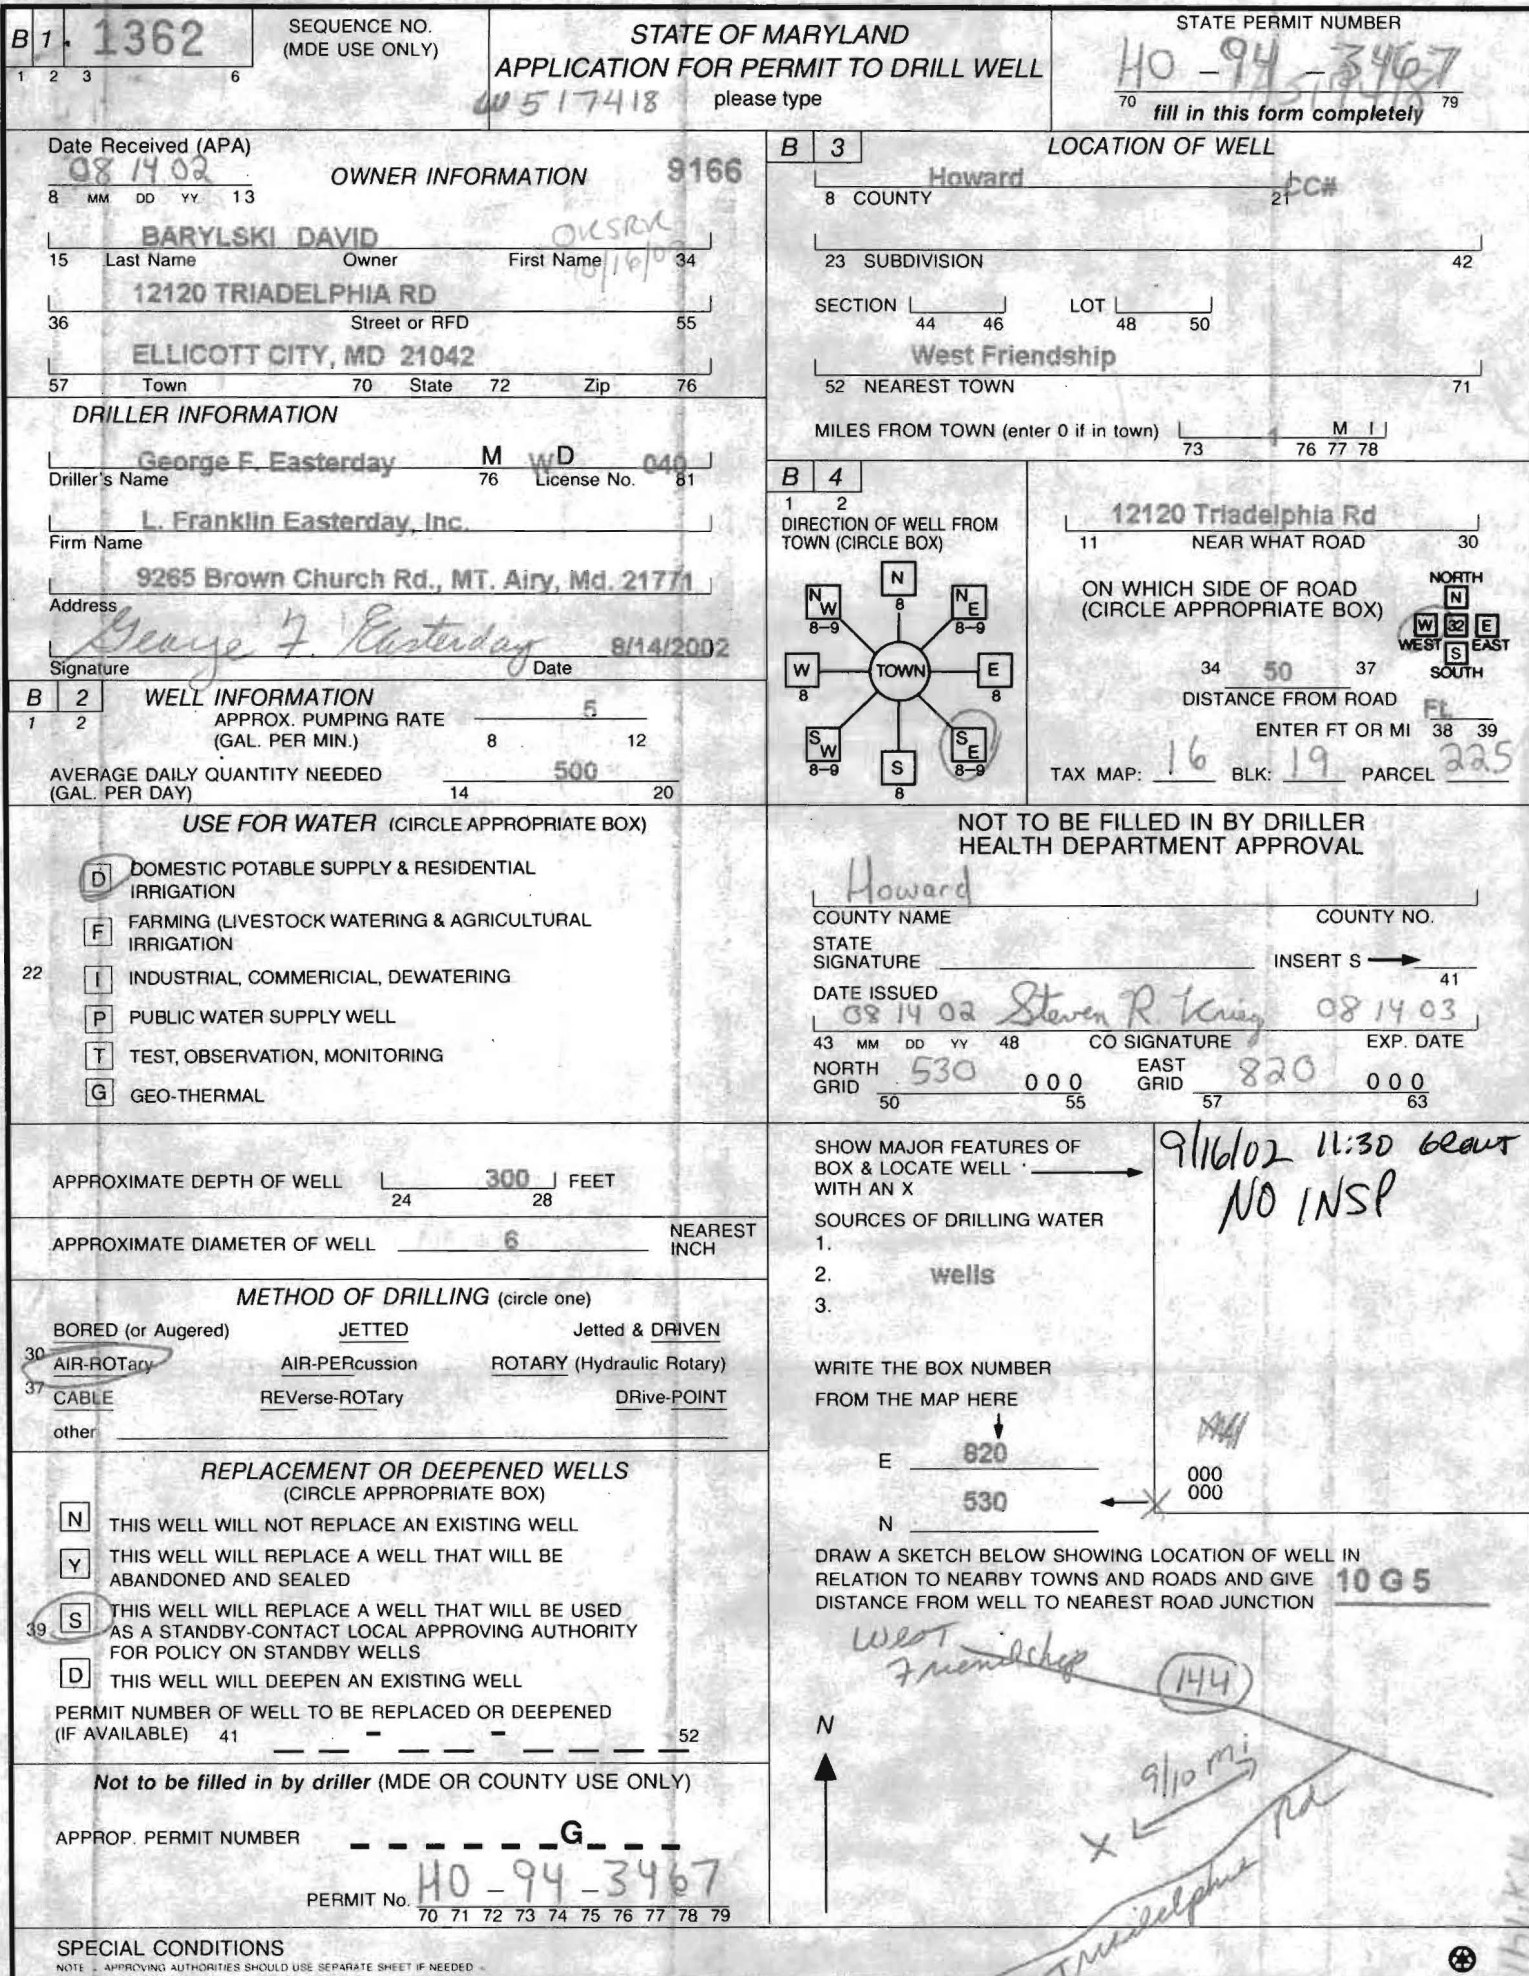 B 1 . 1362
1 2 3 6
SEQUENCE NO.
(MDE USE ONLY)
STATE OF MARYLAND
APPLICATION FOR PERMIT TO DRILL WELL
W517418 please type
STATE PERMIT NUMBER
HO - 94 - 3467
70 79
fill in this form completely
Date Received (APA)
08 14 02
8 MM DD YY 13
OWNER INFORMATION
9166
BARYLSKI DAVID
15 Last Name Owner First Name 34
12120 TRIADELPHIA RD
36 Street or RFD 55
ELLICOTT CITY, MD 21042
57 Town 70 State 72 Zip 76
DRILLER INFORMATION
George F. Easterday M WD 040
Driller's Name 76 License No. 81
L. Franklin Easterday, Inc.
Firm Name
9265 Brown Church Rd., MT. Airy, Md. 21771
Address
George F. Easterday 8/14/2002
Signature Date
B 2 WELL INFORMATION
1 2
APPROX. PUMPING RATE 5
(GAL. PER MIN.) 8 12
AVERAGE DAILY QUANTITY NEEDED 500
(GAL. PER DAY) 14 20
USE FOR WATER (CIRCLE APPROPRIATE BOX)
D DOMESTIC POTABLE SUPPLY & RESIDENTIAL
IRRIGATION
F FARMING (LIVESTOCK WATERING & AGRICULTURAL
IRRIGATION
22 I INDUSTRIAL, COMMERICIAL, DEWATERING
P PUBLIC WATER SUPPLY WELL
T TEST, OBSERVATION, MONITORING
G GEO-THERMAL
APPROXIMATE DEPTH OF WELL 300 FEET
24 28
APPROXIMATE DIAMETER OF WELL 6 NEAREST
INCH
METHOD OF DRILLING (circle one)
BORED (or Augered) JETTED Jetted & DRIVEN
30 AIR-ROTary AIR-PERcussion ROTARY (Hydraulic Rotary)
37 CABLE REVerse-ROTary DRive-POINT
other
REPLACEMENT OR DEEPENED WELLS
(CIRCLE APPROPRIATE BOX)
N THIS WELL WILL NOT REPLACE AN EXISTING WELL
Y THIS WELL WILL REPLACE A WELL THAT WILL BE
ABANDONED AND SEALED
39 S THIS WELL WILL REPLACE A WELL THAT WILL BE USED
AS A STANDBY-CONTACT LOCAL APPROVING AUTHORITY
FOR POLICY ON STANDBY WELLS
D THIS WELL WILL DEEPEN AN EXISTING WELL
PERMIT NUMBER OF WELL TO BE REPLACED OR DEEPENED
(IF AVAILABLE) 41 - - 52
Not to be filled in by driller (MDE OR COUNTY USE ONLY)
APPROP. PERMIT NUMBER G
PERMIT No. HO - 94 - 3467
70 71 72 73 74 75 76 77 78 79
SPECIAL CONDITIONS
NOTE - APPROVING AUTHORITIES SHOULD USE SEPARATE SHEET IF NEEDED -
B 3 LOCATION OF WELL
Howard CC#
8 COUNTY 21
23 SUBDIVISION 42
SECTION LOT
44 46 48 50
West Friendship
52 NEAREST TOWN 71
MILES FROM TOWN (enter 0 if in town) 1 M I
73 76 77 78
B 4
1 2
DIRECTION OF WELL FROM
TOWN (CIRCLE BOX)
N
8
NW NE
8-9 8-9
W TOWN E
8 8
SW SE
8-9 8-9
S
8
12120 Triadelphia Rd
11 NEAR WHAT ROAD 30
ON WHICH SIDE OF ROAD
(CIRCLE APPROPRIATE BOX)
NORTH
N
W 32 E
WEST S EAST
SOUTH
34 50 37
DISTANCE FROM ROAD
ENTER FT OR MI Ft.
38 39
TAX MAP: 16 BLK: 19 PARCEL 225
NOT TO BE FILLED IN BY DRILLER
HEALTH DEPARTMENT APPROVAL
Howard
COUNTY NAME COUNTY NO.
STATE
SIGNATURE INSERT S
41
DATE ISSUED
08 14 02 Steven R Krieg 08 14 03
43 MM DD YY 48 CO SIGNATURE EXP. DATE
NORTH
GRID 530 000
50 55
EAST
GRID 820 000
57 63
SHOW MAJOR FEATURES OF
BOX & LOCATE WELL
WITH AN X
9/16/02 11:30 Grout
NO INSP
SOURCES OF DRILLING WATER
1.
2. wells
3.
WRITE THE BOX NUMBER
FROM THE MAP HERE
E 820
N 530
000
000
DRAW A SKETCH BELOW SHOWING LOCATION OF WELL IN
RELATION TO NEARBY TOWNS AND ROADS AND GIVE 10 G 5
DISTANCE FROM WELL TO NEAREST ROAD JUNCTION
West
Friendship
144
N
9/10 mi
X
Triadelphia Rd